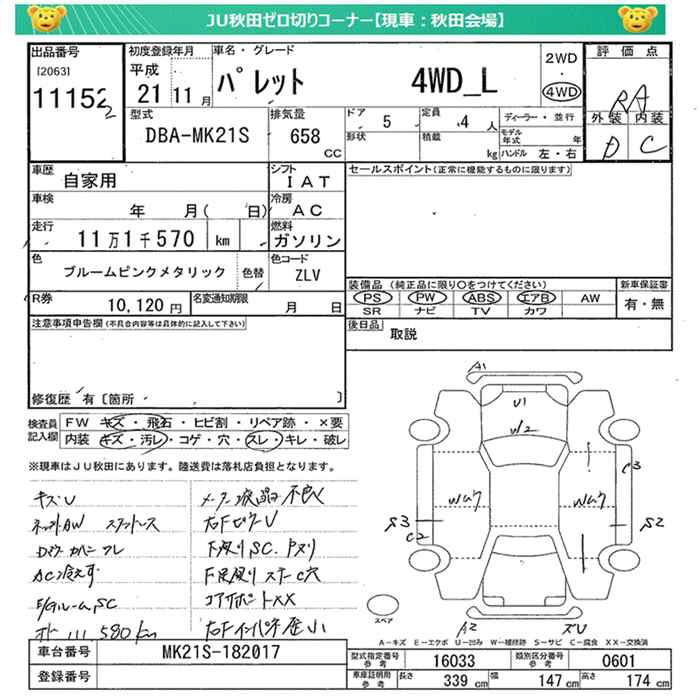 JU秋田ゼロ切りコーナー【現車：秋田会場】
出品番号
[2063]
11152
2
初度登録年月
平成
21 11月
車名・グレード
パレット 4WD_L
2WD
・
4WD
評価点
RA
外装 内装
D C
型式
DBA-MK21S
排気量
658
CC
ドア
5
定員
4 人
形状
積載
kg
ディーラー・並行
モデル年式 年
ハンドル 左・右
車歴
自家用
シフト
IAT
セールスポイント(正常に機能するものに限ります)
車検
年 月( 日)
冷房
AC
走行
11万1千570 km
燃料
ガソリン
色
ブルームピンクメタリック
色替
色コード
ZLV
装備品 (純正品に限り○をつけてください)
PS PW ABS エアB AW
SR ナビ TV カワ
新車保証書
有・無
R券
10,120 円
名変通知期限
月 日
後日品
取説
注意事項申告欄(不具合内容等は具体的に記入して下さい)
修復歴 有〔箇所 〕
検査員
記入欄
FW キズ・飛石・ヒビ割・リペア跡・×要
内装 キズ・汚レ・コゲ・穴・スレ・キレ・破レ
※現車はJU秋田にあります。陸送費は落札店負担となります。
キズU
メーター液晶不良
スタットレス
AC冷えず
下廻りSC.
コアサポートXX
111,580km
A1
U1
W2
C3
Wカク
Wカク
S3
C2
S2
A2
ズU
スペア
A－キズ E－エクボ U－凹み W－補修跡 S－サビ C－腐食 XX－交換済
車台番号
MK21S-182017
登録番号
型式指定番号
参考
16033
類別区分番号
参考
0601
車庫証明用
参考
長さ
339 cm
幅
147 cm
高さ
174 cm